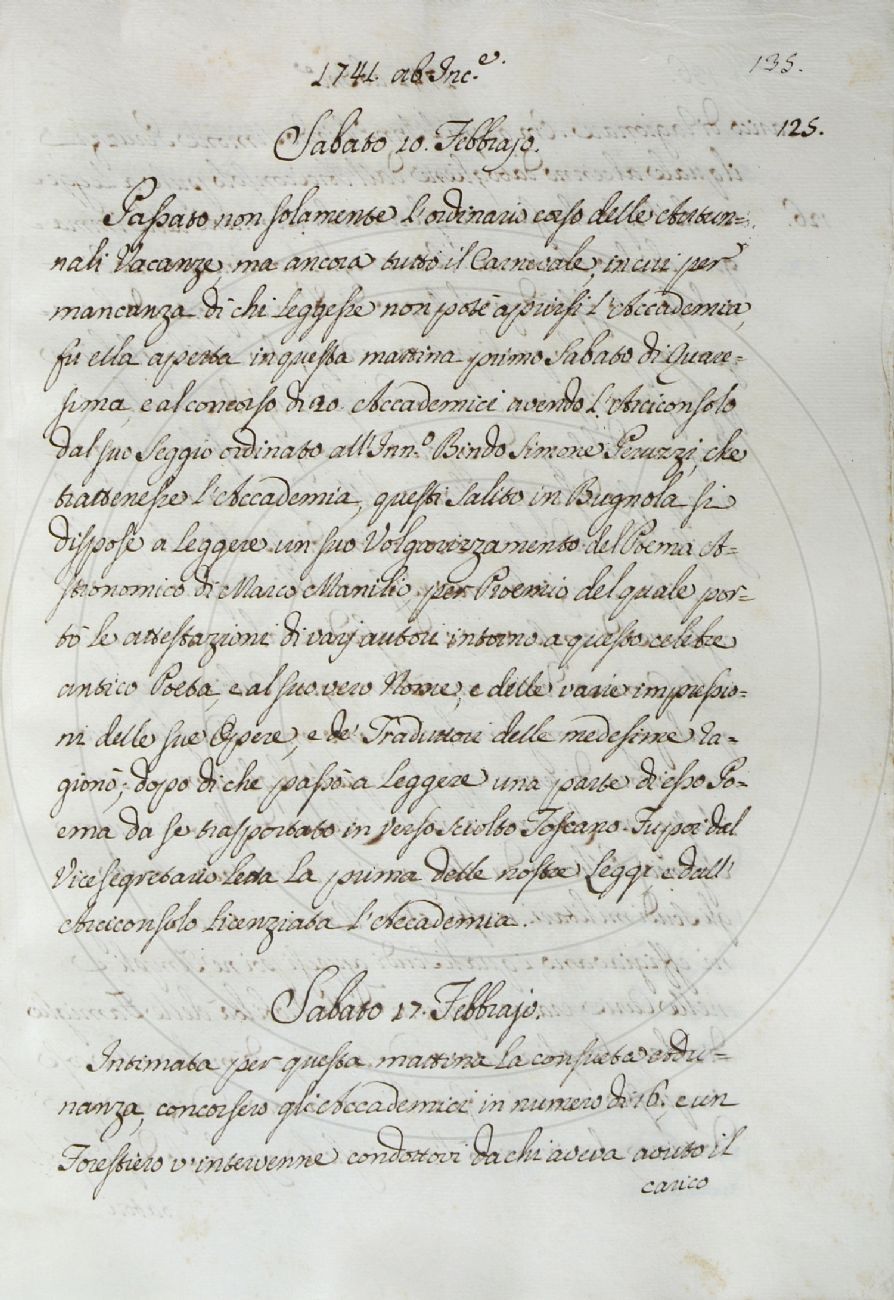 1741. ab Inc.e
135.
125.
Sabato 10. Febbrajo.
Passato non solamente l'ordinario corso delle Autun=
nali Vacanze, ma ancora tutto il Carnevale, in cui per
mancanza di chi leggesse non potè aprirsi l'Accademia,
fu ella aperta in questa mattina primo Sabato di Quare=
sima, e al concorso di 20. Accademici avendo l'Arciconsolo
dal suo Seggio ordinato all'Inn.o Bindo Simone Peruzzi, che
trattenesse l'Accademia, questi salito in Bugnola si
dispose a leggere un suo Volgarizzamento del Poema A=
stronomico di Marco Manilio, per Proemio del quale por=
tò le attestazioni di varj autori intorno a questo celebre
antico Poeta, e al suo vero Nome, e delle varie impressio=
ni delle sue Opere, e de' Traduttori delle medesime ra=
gionò; dopo di che passò a leggere una parte di esso Po=
ema da se trasportato in verso sciolto Toscano. Fu poi dal
Vicesegretario letta la prima delle nostre Leggi e dall'
Arciconsolo licenziata l'Accademia.
Sabato 17. Febbrajo.
Intimata per questa mattina la consueta Adu=
nanza, concorsero gli Accademici in numero di 16. e un
Forestiero v'intervenne condottovi da chi aveva avuto il
carico